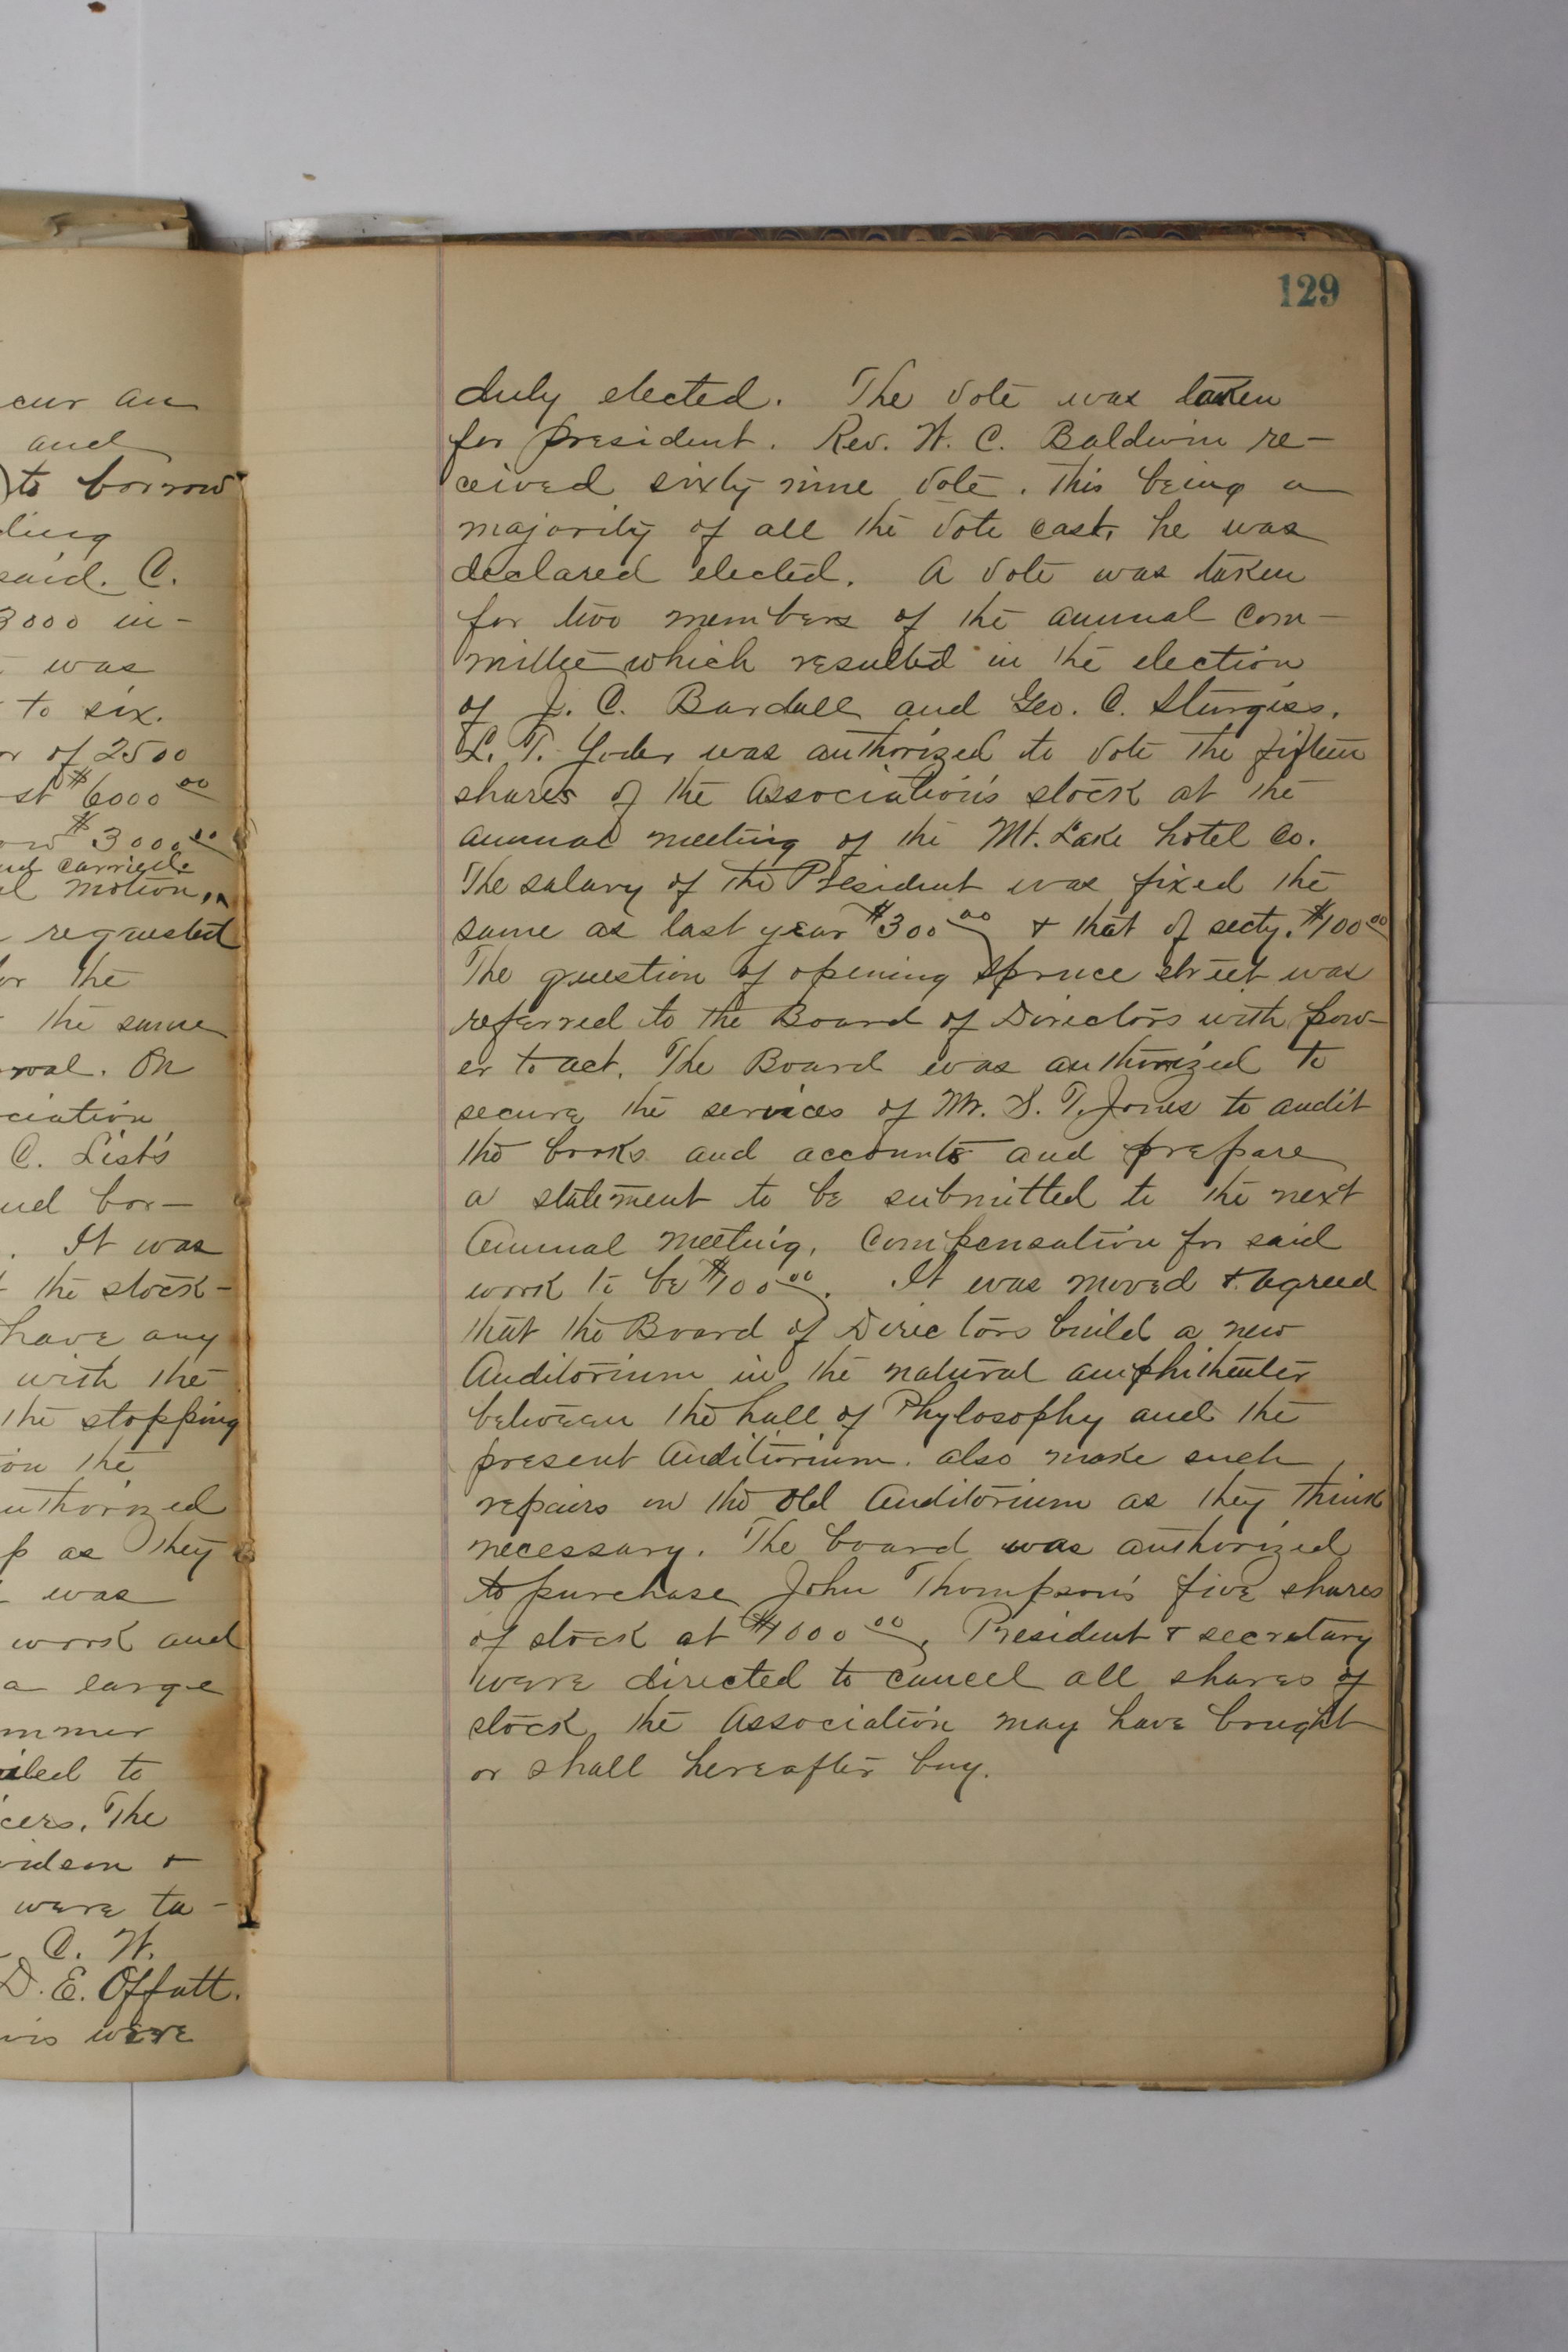 cur an
and
) to borrow
ding
said. C.
3000 in-
was
to six.
or of 2500
st $6000 00
ow $3000 00
and carried.
l motion,
requested
or the
the same
val. On
ciation
C. List's
and bor-
. It was
the stock-
have any
with the
the stopping
on the
uthorized
p as they
was
work and
a large
mmer
iled to
cers. The
vidson &
were ta-
C. W.
D. E. Offutt.
were
129
duly elected. The vote was taken
for president. Rev. W. C. Baldwin re-
ceived sixty nine vote. This being a
majority of all the vote cast, he was
declared elected. A vote was taken
for two members of the annual com-
mittee which resulted in the election
of J. C. Bardall and Geo. C. Sturgiss.
L. T. Yoder was authorized to vote the fifteen
shares of the Association's stock at the
annual meeting of the Mt. Lake hotel Co.
The salary of the President was fixed the
same as last year $300 00 & that of secty. $100 00
The question of opening Spruce street was
referred to the Board of Directors with pow-
er to act. The Board was authorized to
secure the services of Mr. S. T. Jones to audit
the books and accounts and prepare
a statement to be submitted to the next
Annual meeting. Compensation for said
work to be $100 00. It was moved & agreed
that the Board of Directors build a new
Auditorium in the natural amphitheater
between the hall of Phylosophy and the
present Auditorium. also make such
repairs on the old Auditorium as they think
necessary. The board was authorized
to purchase John Thompson's five shares
of stock at $1000 00. President & secretary
were directed to cancel all shares of
stock, the Association may have bought
or shall hereafter buy.